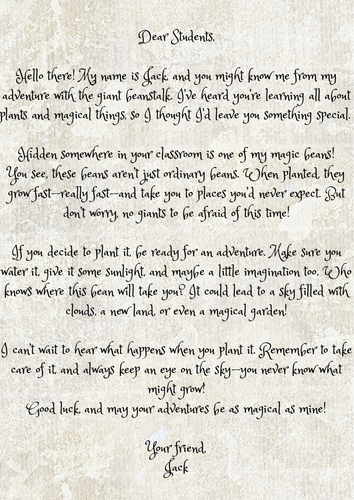 Dear Students,
Hello there! My name is Jack, and you might know me from my
adventure with the giant beanstalk. I've heard you're learning all about
plants and magical things, so I thought I'd leave you something special.
Hidden somewhere in your classroom is one of my magic beans!
You see, these beans aren't just ordinary beans. When planted, they
grow fast—really fast—and take you to places you'd never expect. But
don't worry, no giants to be afraid of this time!
If you decide to plant it, be ready for an adventure. Make sure you
water it, give it some sunlight, and maybe a little imagination too. Who
knows where this bean will take you? It could lead to a sky filled with
clouds, a new land, or even a magical garden!
I can't wait to hear what happens when you plant it. Remember to take
care of it and always keep an eye on the sky—you never know what
might grow!
Good luck, and may your adventures be as magical as mine!
Your friend,
Jack